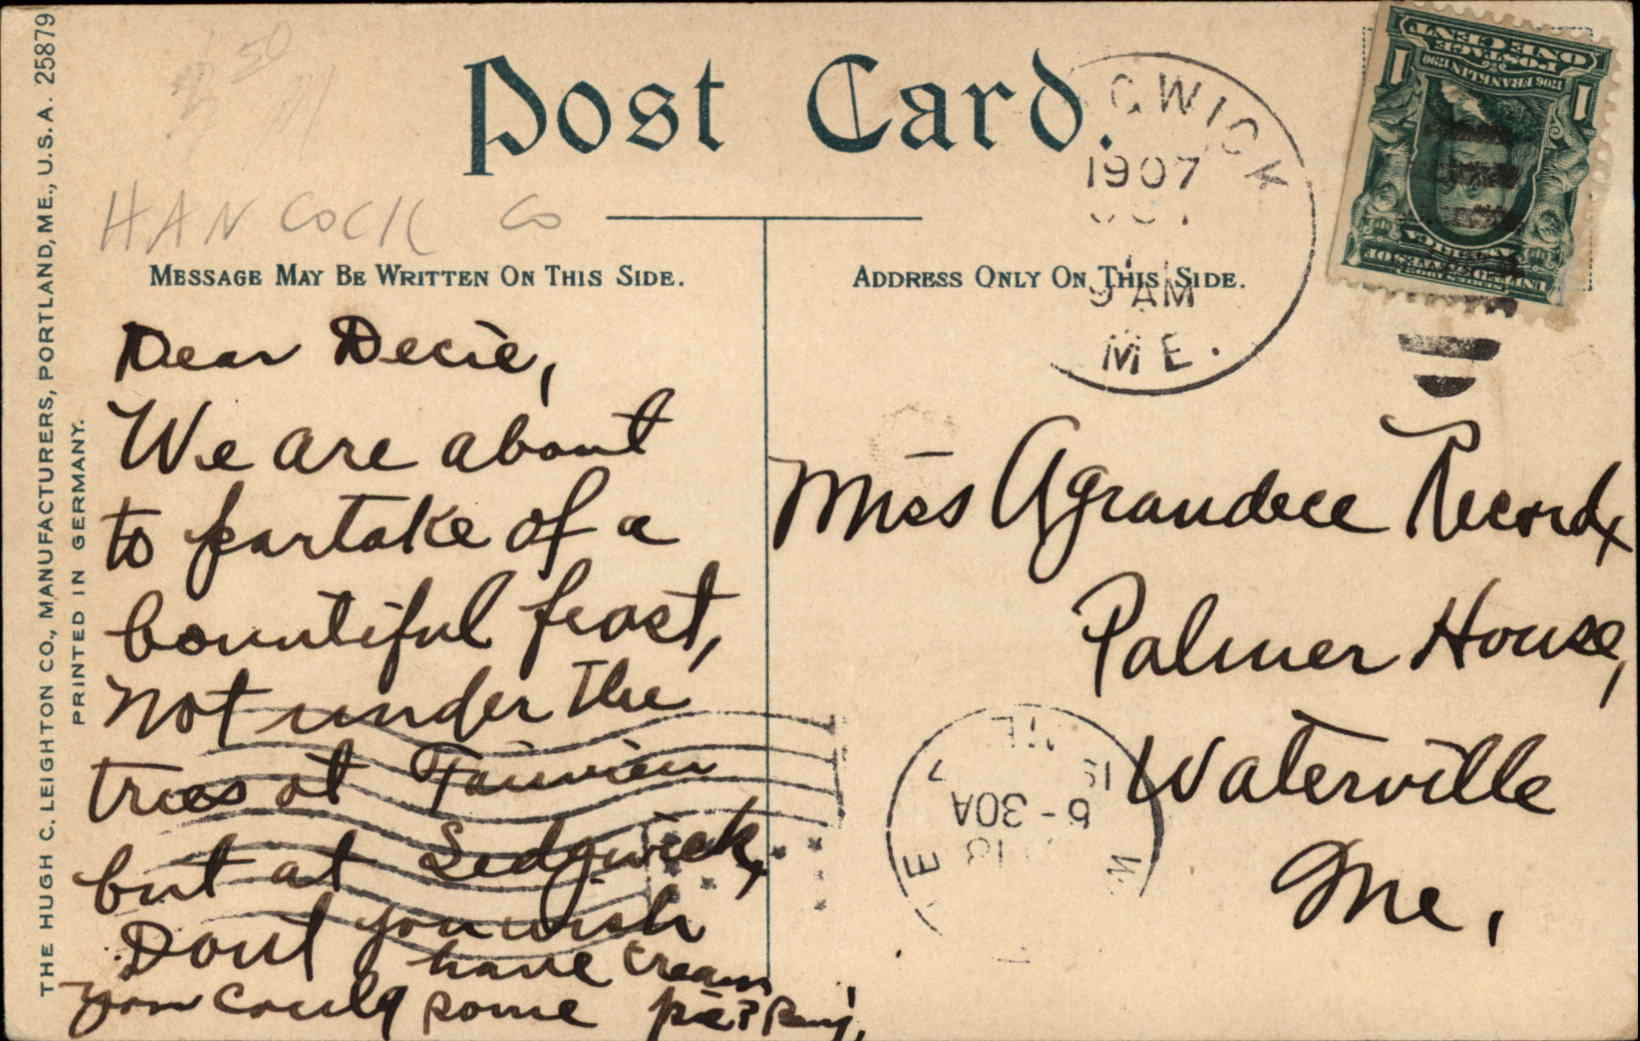 THE HUGH C. LEIGHTON CO., MANUFACTURERS, PORTLAND, ME., U.S.A. 25879
PRINTED IN GERMANY.
Post Card.
HANCOCK CO
MESSAGE MAY BE WRITTEN ON THIS SIDE.
Dear Decie,
We are about
to partake of a
bountiful feast,
not under the
trees at Fairview
but at Sedgwick,
Dont you wish
you could have some cream
pie?
ADDRESS ONLY ON THIS SIDE.
GWICK
1907
9 AM
ME.
POSTAGE
ONE CENT
1706 FRANKLIN 1790
1 1
SERIES 1902
UNITED STATES OF
AMERICA
Miss Agrandece Record,
Palmer House,
Waterville
Me.
6-30A